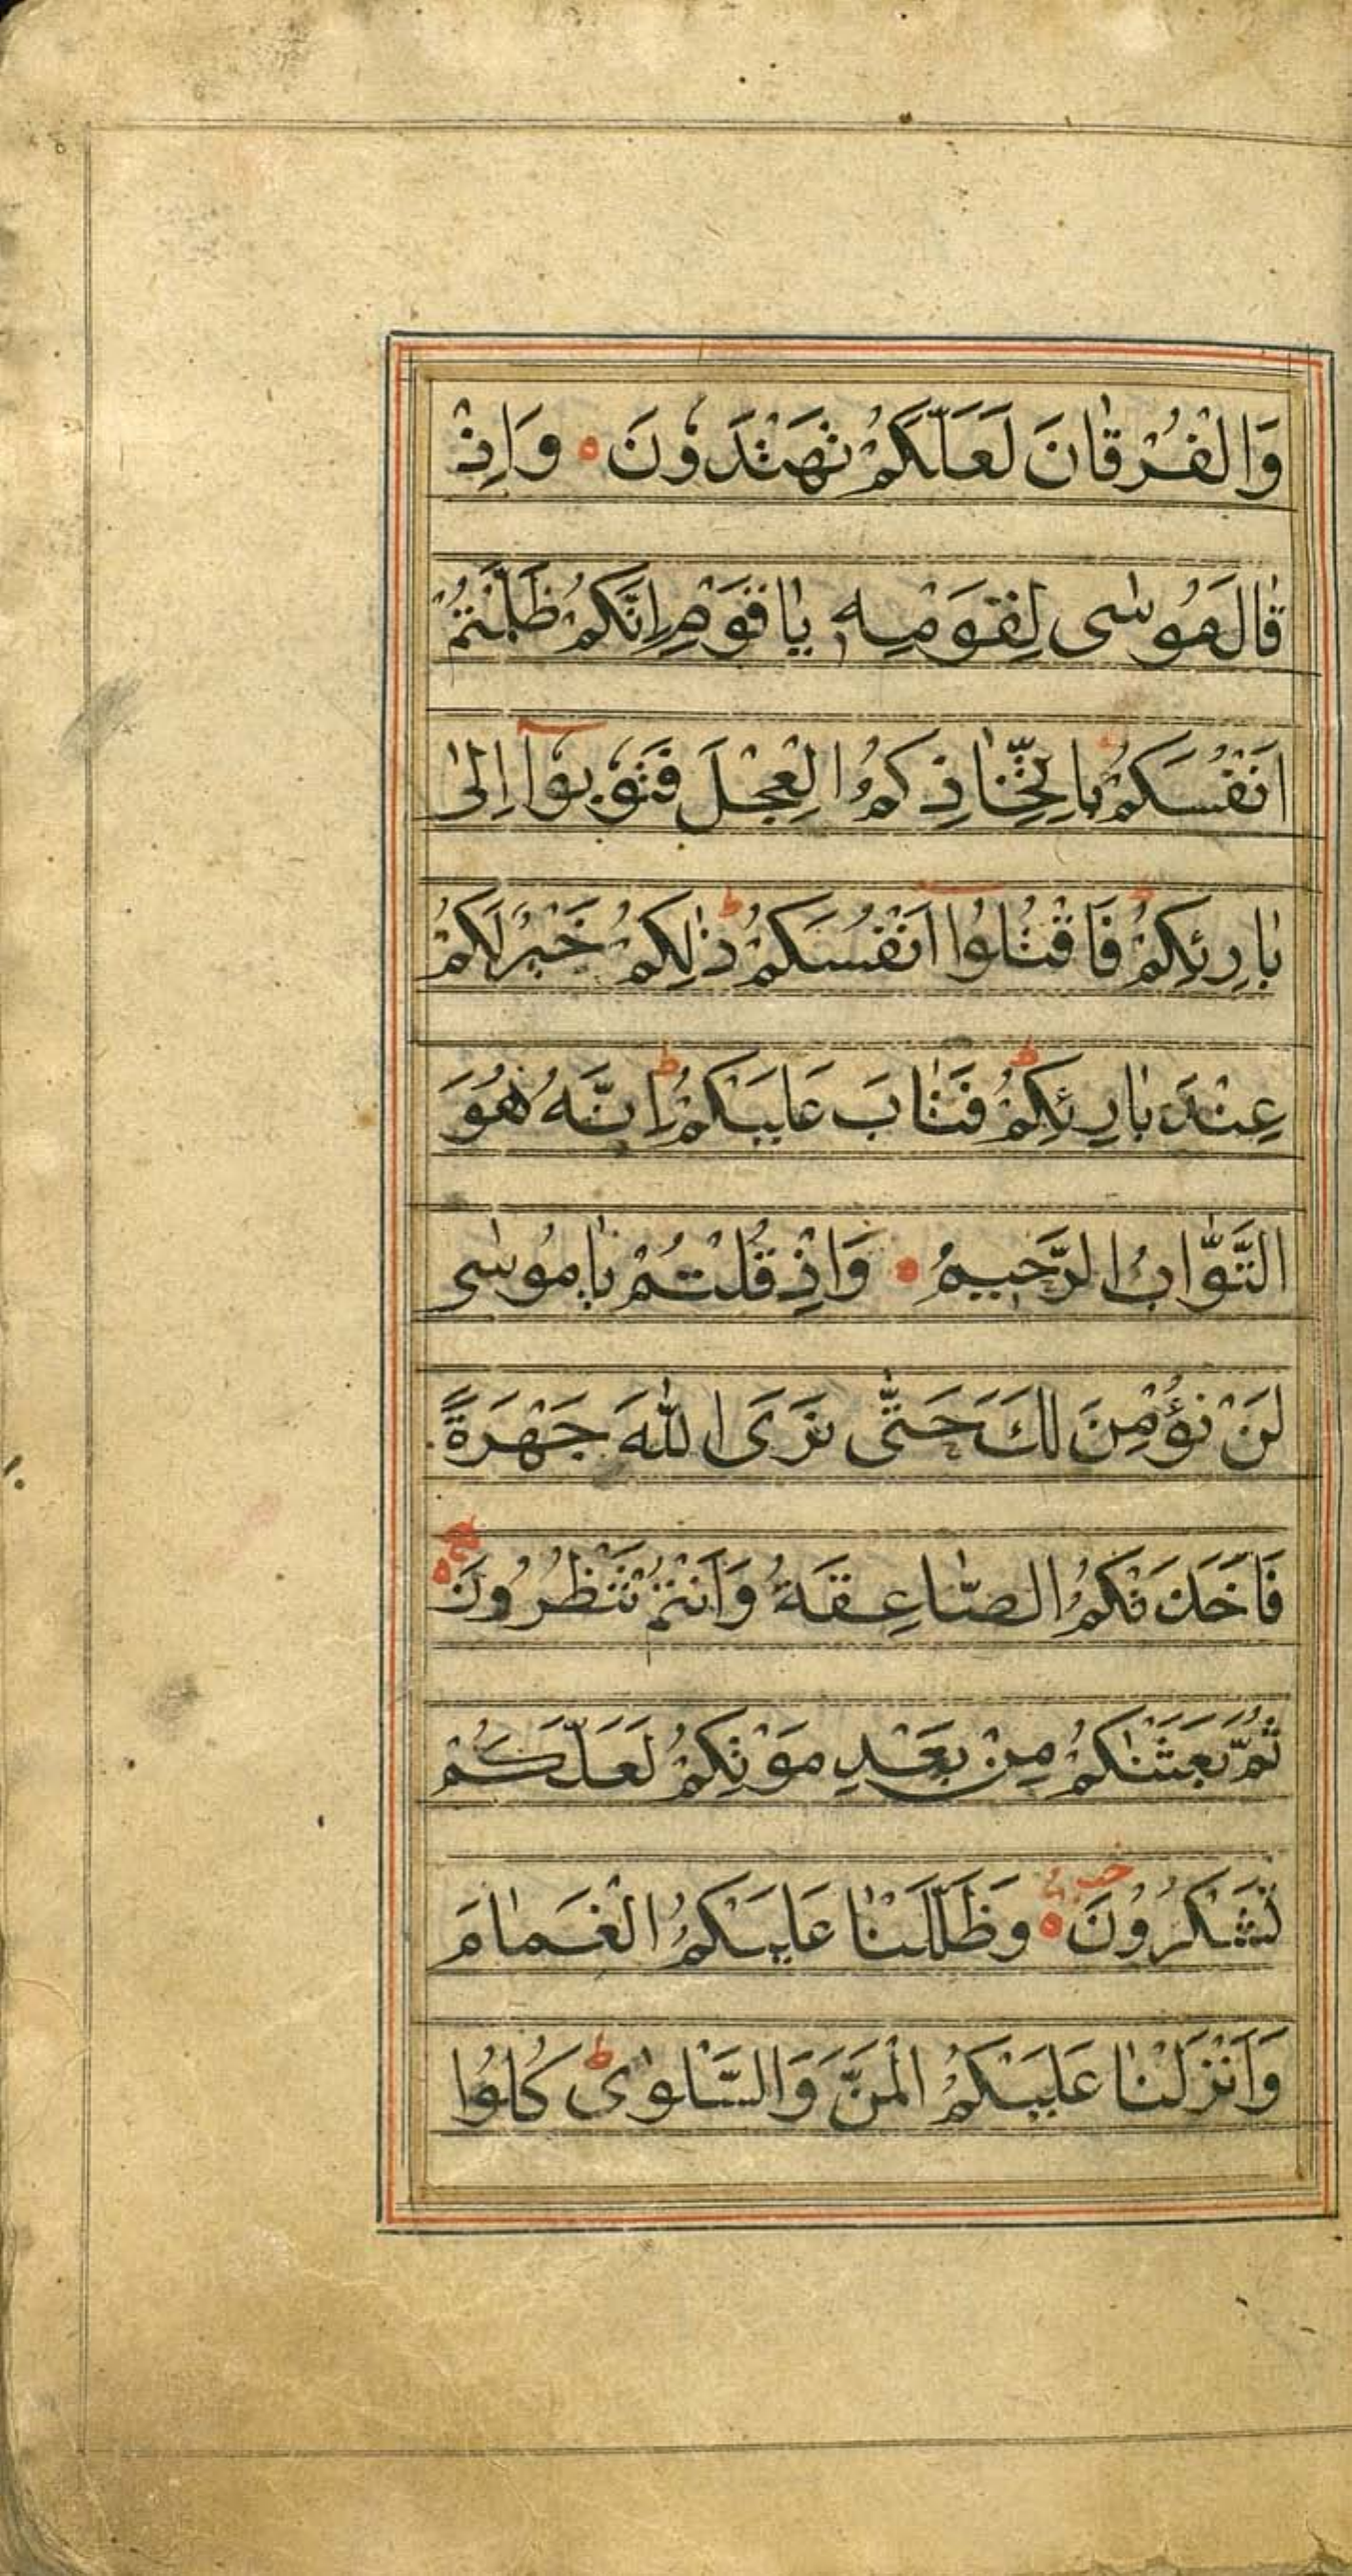 وَالْفُرْقَانَ لَعَلَّكُمْ تَهْتَدُونَ ۝ وَاِذْ
قَالَ مُوسٰى لِقَوْمِهٖ يَا قَوْمِ اِنَّكُمْ ظَلَمْتُمْ
اَنْفُسَكُمْ بِاتِّخَاذِكُمُ الْعِجْلَ فَتُوبُوا اِلٰى
بَارِئِكُمْ ط فَاقْتُلُوا اَنْفُسَكُمْ ط ذٰلِكُمْ خَيْرٌ لَكُمْ
عِنْدَ بَارِئِكُمْ ط فَتَابَ عَلَيْكُمْ ط اِنَّهُ هُوَ
التَّوَّابُ الرَّحِيمُ ۝ وَاِذْ قُلْتُمْ يَا مُوسٰى
لَنْ نُؤْمِنَ لَكَ حَتّٰى نَرَى اللّٰهَ جَهْرَةً
فَاَخَذَتْكُمُ الصَّاعِقَةُ وَاَنْتُمْ تَنْظُرُونَ ۝
ثُمَّ بَعَثْنٰكُمْ مِنْ بَعْدِ مَوْتِكُمْ لَعَلَّكُمْ
تَشْكُرُوْنَ ۝ وَظَلَّلْنَا عَلَيْكُمُ الْغَمَامَ
وَاَنْزَلْنَا عَلَيْكُمُ الْمَنَّ وَالسَّلْوٰى ط كُلُوا